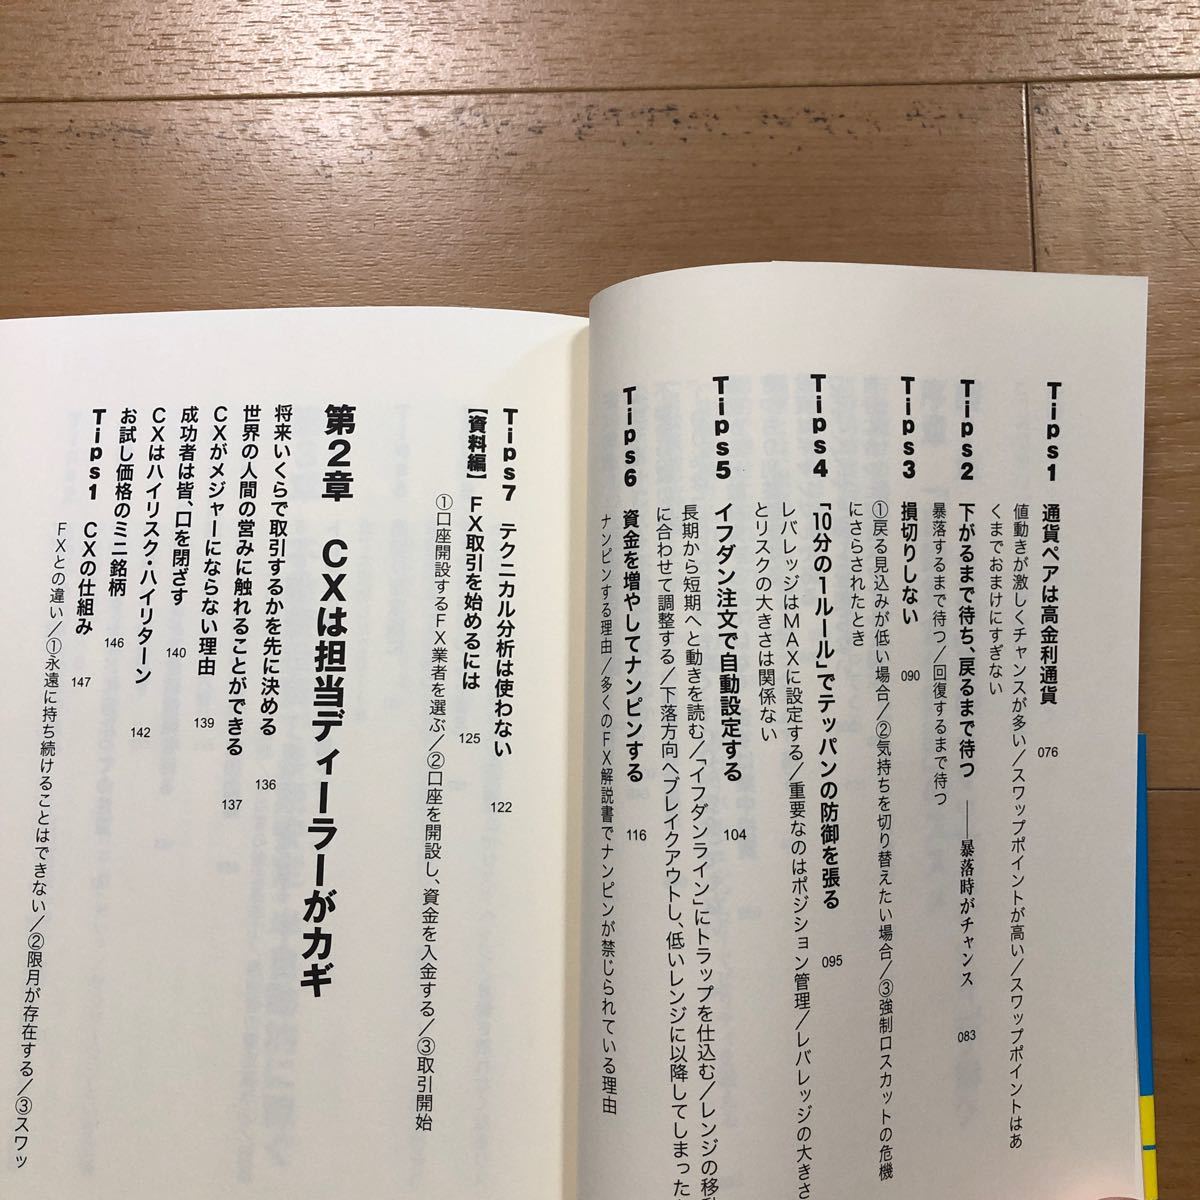 Tips1 通貨ペアは高金利通貨 076
値動きが激しくチャンスが多い/スワップポイントが高い/スワップポイントはあ
くまでおまけにすぎない
Tips2 下がるまで待ち、戻るまで待つ ——暴落時がチャンス 083
暴落するまで待つ/回復するまで待つ
Tips3 損切りしない 090
①戻る見込みが低い場合/②気持ちを切り替えたい場合/③強制ロスカットの危機
にさらされたとき
Tips4 「10分の1ルール」でテッパンの防御を張る 095
レバレッジはMAXに設定する/重要なのはポジション管理/レバレッジの大きさ
とリスクの大きさは関係ない
Tips5 イフダン注文で自動設定する 104
長期から短期へと動きを読む/「イフダンライン」にトラップを仕込む/レンジの移動
に合わせて調整する/下落方向へブレイクアウトし、低いレンジに以降してしまった
Tips6 資金を増やしてナンピンする 116
ナンピンする理由/多くのFX解説書でナンピンが禁じられている理由
Tips7 テクニカル分析は使わない 122
【資料編】 FX取引を始めるには 125
①口座開設するFX業者を選ぶ/②口座を開設し、資金を入金する/③取引開始
第2章 CXは担当ディーラーがカギ
将来いくらで取引するかを先に決める 136
世界の人間の営みに触れることができる 137
CXがメジャーにならない理由 139
成功者は皆、口を閉ざす 140
CXはハイリスク・ハイリターン 142
お試し価格のミニ銘柄 146
Tips1 CXの仕組み 147
FXとの違い/①永遠に持ち続けることはできない/②限月が存在する/③スワッ